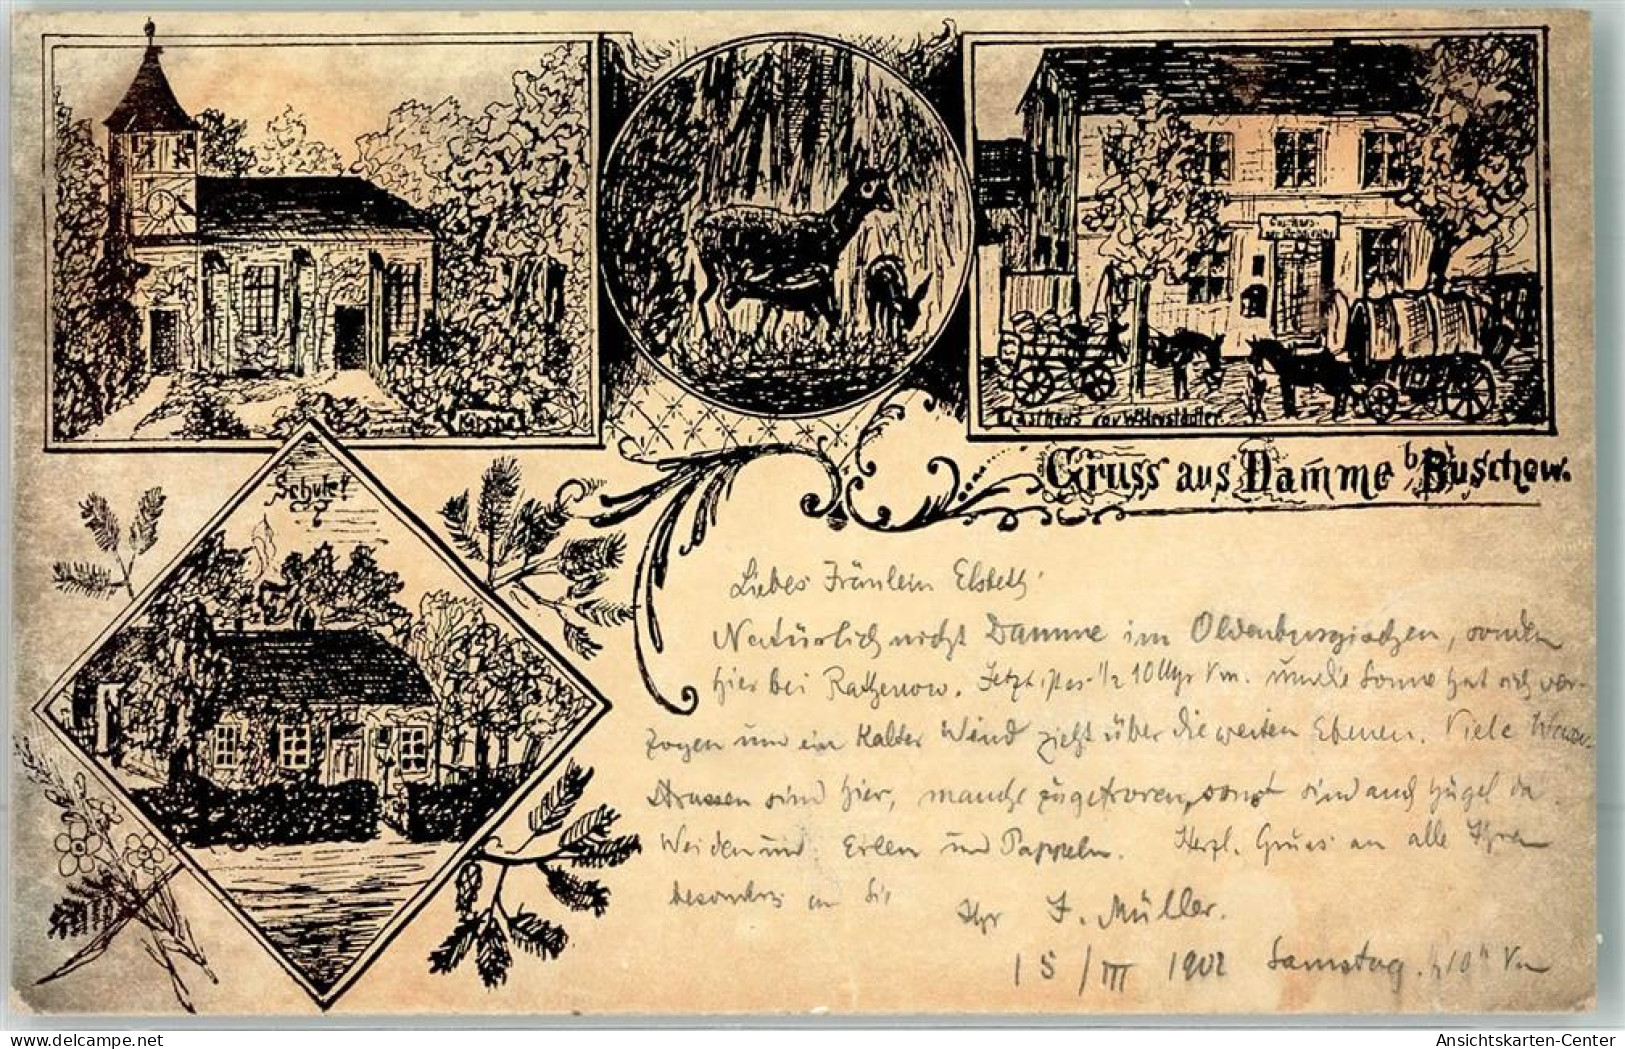 Kirche
Gasthaus
Gasthaus von W. Neustädter.
Schule!
Gruss aus Damme b. Buschow.
Liebes Fräulein Elsbeth!
Natürlich nicht Damme im Oldenburgischen, sondern
hier bei Rathenow. Jetzt ist es 1/2 10 Uhr Vm. und die Sonne hat sich ver-
zogen und ein kalter Wind zieht über die weiten Ebenen. Viele
sind hier, manche zugefroren, sonst sind auch Hügel da
Weiden und Erlen und Pappeln. Herzl. Gruss an alle Ihren
besonders an Sie
Ihr F. Müller.
15/III 1902 Samstag. 1/2 10 h Vm
Ansichtskarten-Center
www.ansichtskarten-center.de